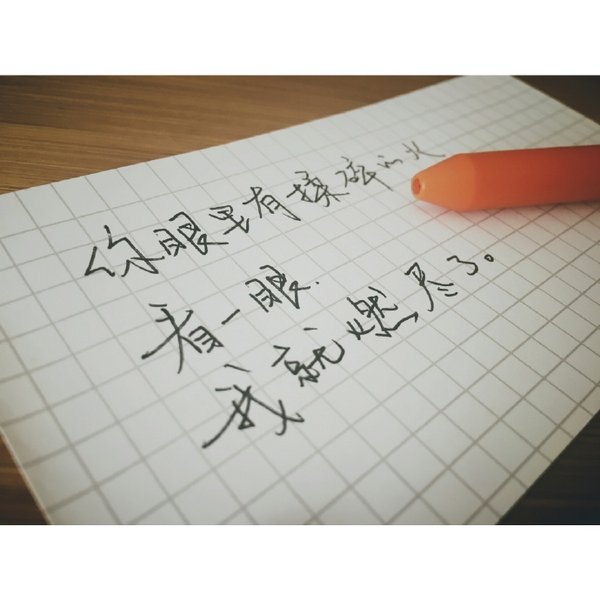 你眼里有揉碎的火
看一眼.
我就燃尽了。